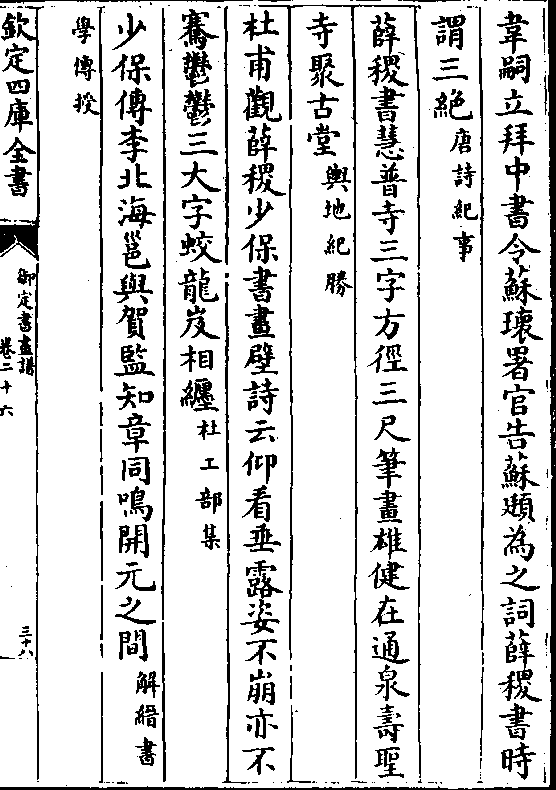 韋嗣立拜中書令蘇瓌署官告蘇頲為之詞薛稷書時
謂三絶唐詩紀事
薛稷書慧普寺三字方徑三尺筆畫雄健在通泉壽聖
寺聚古堂輿地紀勝
杜甫觀薛稷少保書畫壁詩云仰看垂露姿不崩亦不
騫鬱鬱三大字蛟龍岌相纒杜工部集
少保傳李北海邕與賀監知章同鳴開元之間解縉書
學傳授
欽定四庫全書
御定書畫譜
卷二十六
三十八